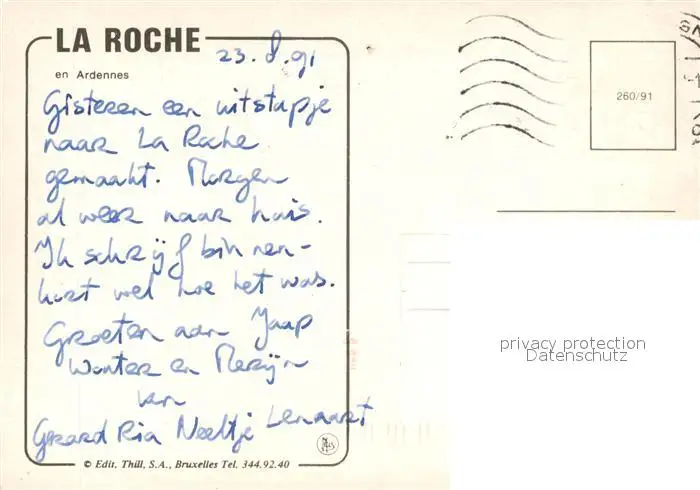 LA ROCHE
23.8.91
en Ardennes
Gisteren een uitstapje
naar La Roche
gemaakt. Morgen
al weer naar huis.
Ik schrijf binnen-
kort wel hoe het was.
Groeten aan Jaap
Wouter en Merijn
van
Gerard Ria Neeltje Lenaart
© Edit. Thill, S.A., Bruxelles Tel. 344.92.40
260/91
privacy protection
Datenschutz